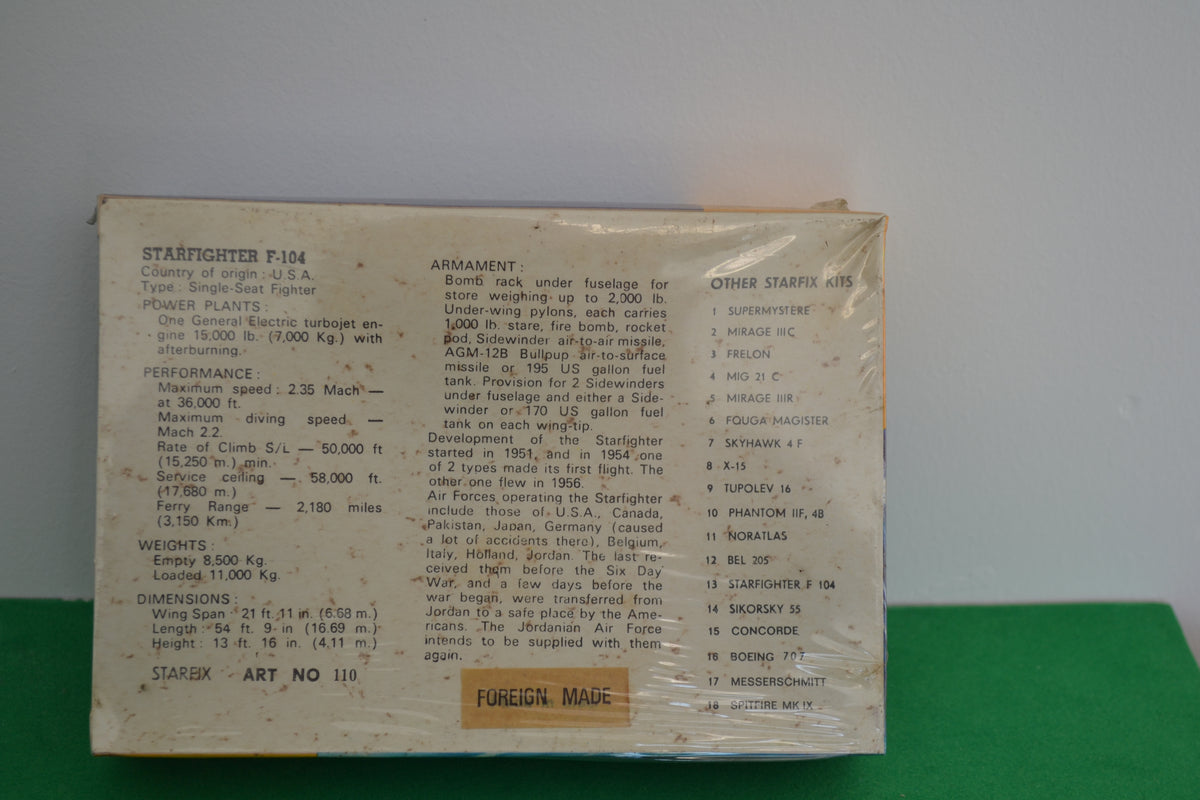 STARFIGHTER F-104
Country of origin : U.S.A.
Type : Single-Seat Fighter
POWER PLANTS :
One General Electric turbojet en-
gine 15,000 lb. (7,000 Kg.) with
afterburning.
PERFORMANCE :
Maximum speed : 2.35 Mach —
at 36,000 ft.
Maximum diving speed —
Mach 2.2.
Rate of Climb S/L — 50,000 ft
(15,250 m.) min.
Service ceiling — 58,000 ft.
(17,680 m.)
Ferry Range — 2,180 miles
(3,150 Km.)
WEIGHTS :
Empty 8,500 Kg.
Loaded 11,000 Kg.
DIMENSIONS :
Wing Span : 21 ft. 11 in. (6.68 m.)
Length : 54 ft. 9 in (16.69 m.)
Height : 13 ft. 16 in. (4.11 m.)
STARFIX ART NO 110
ARMAMENT :
Bomb rack under fuselage for
store weighing up to 2,000 lb.
Under-wing pylons, each carries
1,000 lb. stare, fire bomb, rocket
pod, Sidewinder air-to-air missile,
AGM-12B Bullpup air-to-surface
missile or 195 US gallon fuel
tank. Provision for 2 Sidewinders
under fuselage and either a Side-
winder or 170 US gallon fuel
tank on each wing-tip.
Development of the Starfighter
started in 1951, and in 1954 one
of 2 types made its first flight. The
other one flew in 1956.
Air Forces operating the Starfighter
include those of U.S.A., Canada,
Pakistan, Japan, Germany (caused
a lot of accidents there), Belgium,
Italy, Holland, Jordan. The last re-
ceived them before the Six Day
War, and a few days before the
war began, were transferred from
Jordan to a safe place by the Ame-
ricans. The Jordanian Air Force
intends to be supplied with them
again.
FOREIGN MADE
OTHER STARFIX KITS
1 SUPERMYSTERE
2 MIRAGE IIIC
3 FRELON
4 MIG 21 C
5 MIRAGE IIIR
6 FOUGA MAGISTER
7 SKYHAWK 4 F
8 X-15
9 TUPOLEV 16
10 PHANTOM IIF, 4B
11 NORATLAS
12 BEL 205
13 STARFIGHTER F 104
14 SIKORSKY 55
15 CONCORDE
16 BOEING 707
17 MESSERSCHMITT
18 SPITFIRE MK IX